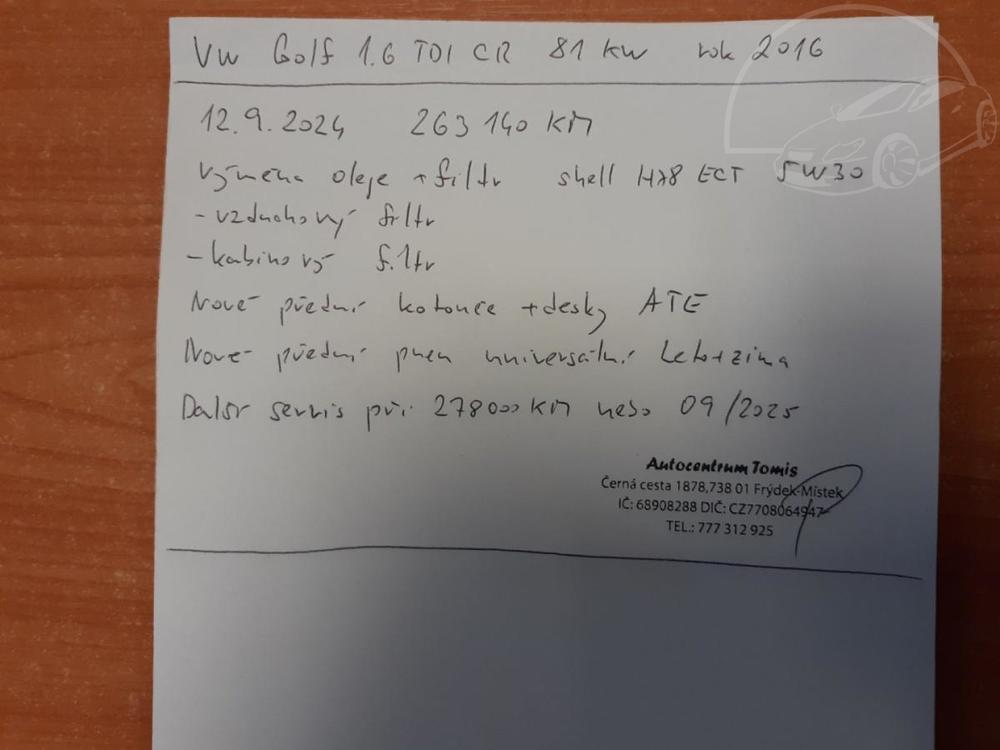 VW Golf 1.6 TDI CR 81 kW rok 2016
12.9.2024 263 140 KM
výměna oleje + filtr shell HX8 ECT 5W30
- vzduchový filtr
- kabinový filtr
Nové přední kotouče + desky ATE
Nové přední pneu universální Leto+zima
Další servis při 278000 KM nebo 09/2025
Autocentrum Tomis
Černá cesta 1878,738 01 Frýdek-Místek
IČ: 68908288 DIČ: CZ7708064947
TEL.: 777 312 925